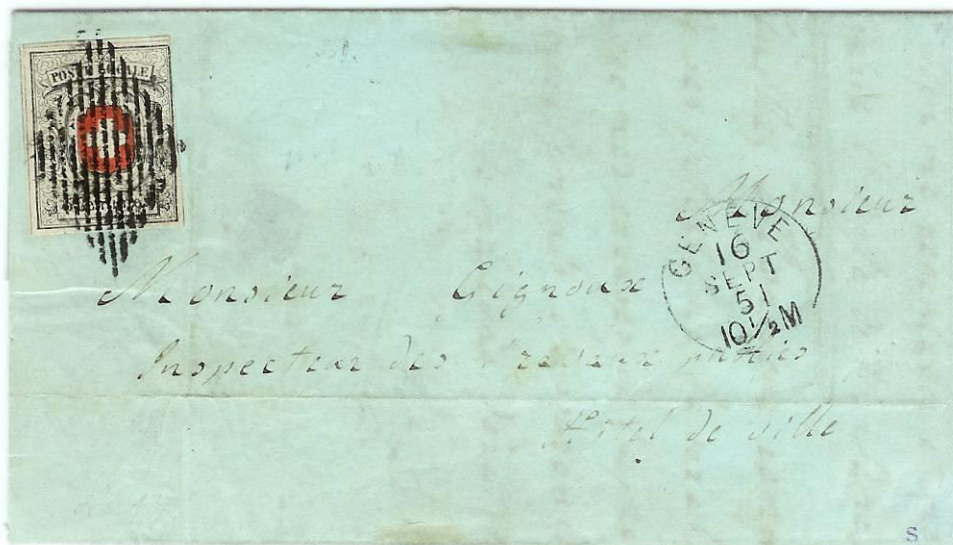 POSTE LOCALE
Monsieur
GENEVE
16
SEPT
51
10½M
Monsieur Gignoux
Inspecteur des Travaux publics
Hôtel de ville
S